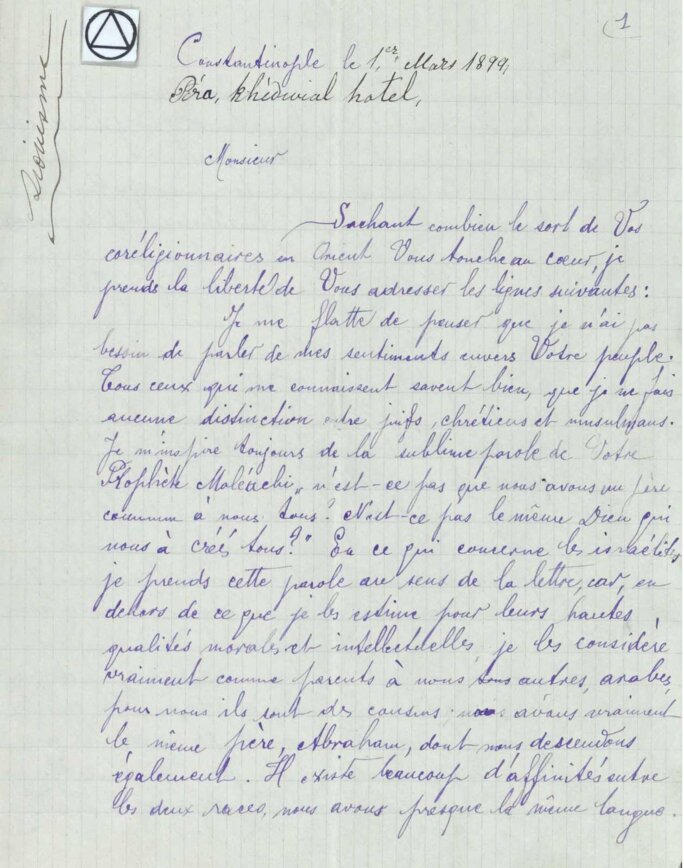 1
Sionisme
Constantinople le 1,er Mars 1899,
Péra, khédivial hotel,
Monsieur
Sachant combien le sort de Vos
coréligionnaires en Orient Vous touche au cœur, je
prends la liberté de Vous adresser les lignes suivantes :
Je me flatte de penser que je n'ai pas
besoin de parler de mes sentiments envers Votre peuple.
Tous ceux qui me connaissent savent bien, que je ne fais
aucune distinction entre juifs, chrétiens et musulmans.
Je m'inspire toujours de la sublime parole de Votre
Prophète Maléachi „ n'est-ce pas que nous avons un père
commun à nous tous? N'est-ce pas le même Dieu qui
nous à créés tous?" En ce qui concerne les israélites
je prends cette parole au sens de la lettre, car, en
dehors de ce que je les estime pour leurs hautes
qualités morales et intellectuelles, je les considère
vraiment comme parents à nous autres, arabes,
pour nous ils sont des cousins ; nous avons vraiment
le même père, Abraham, dont nous descendons
également. Il existe beaucoup d'affinités entre
les deux races, nous avons presque la même langue.